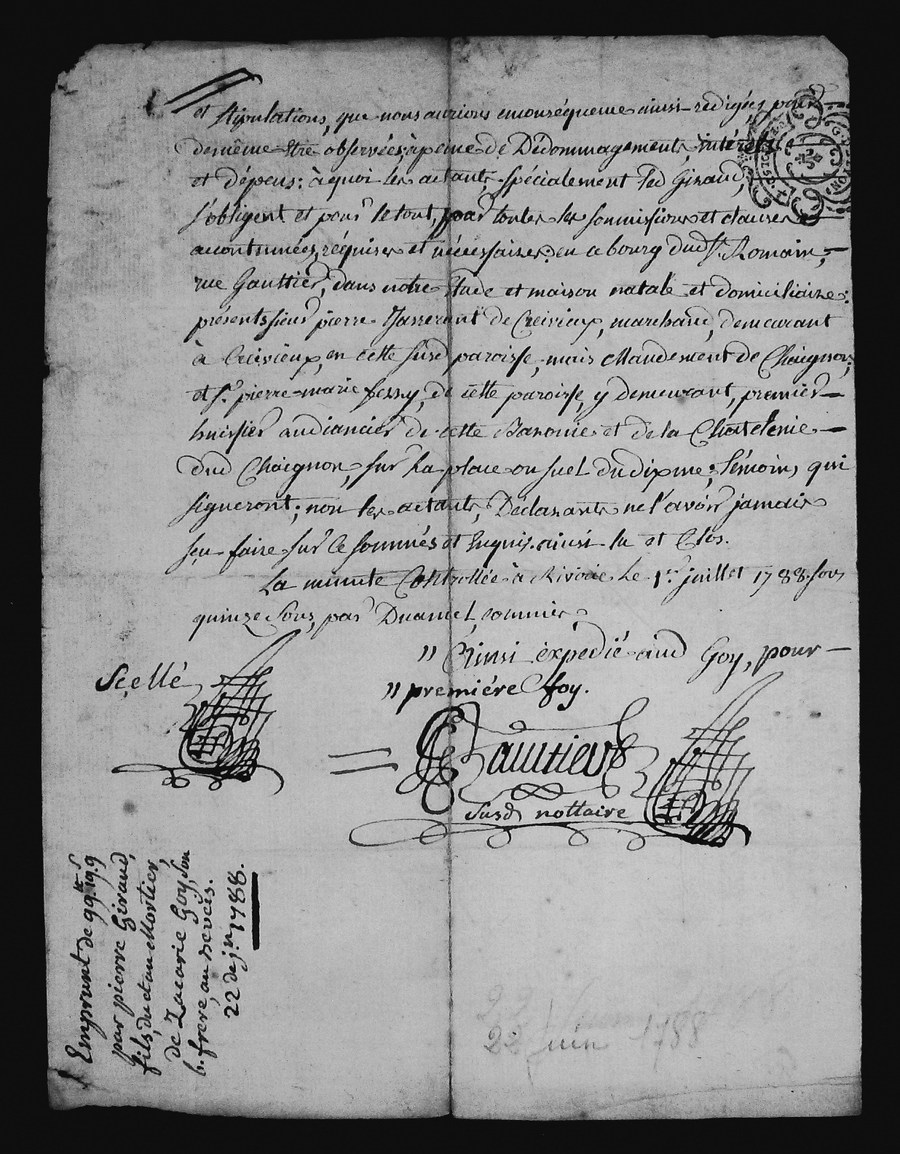 et stipulations, que nous aurions enconséquence ainsi redigées, pour
demême être observées, àpeine de Dédommagements, intérêts
et dépens: àquoi les actants, spécialement led Giraud,
s'obligent et pour le tout, par toutes les soumissions et clauses
accoutumées, réquises et nécessaires: en ce bourg dud St. Romain,
rue Gauttier, dans notre étude et maison natale et domiciliaire:
présents sieur pierre Masserant de Creivieux, marchand, demeurant
à Creivieux, en cette susd paroisse, mais Mandement de Chaignon;
et Sr. pierre-marie fessy, de cette paroisse, y demeurant, premier
huissier audiancier de cette Baronie et de la Chatelenie
dud Chaignon, sur la place ou suel du dixme; témoins, qui
signeront; non les actants, Déclarants ne l'avoir jamais
sçu faire sur ce sommés et enquis. ainsi lu et Clos.
La minute Controllée à Rivedie le 1er. juillet 1788. sous
quinze sous, par Duamel, commis.
" Ainsi èxpedié aud Goy, pour
" premiére foy.
Scellé
Gauttier
susd nottaire
Emprunt de 99tt. 19 s
par pierre Giraud,
fils, du et au Mortier
de Zacarie Goy, son
b. frere, au reveis.
22 de jn. 1788.
22 juin 1788
22 juin 1788